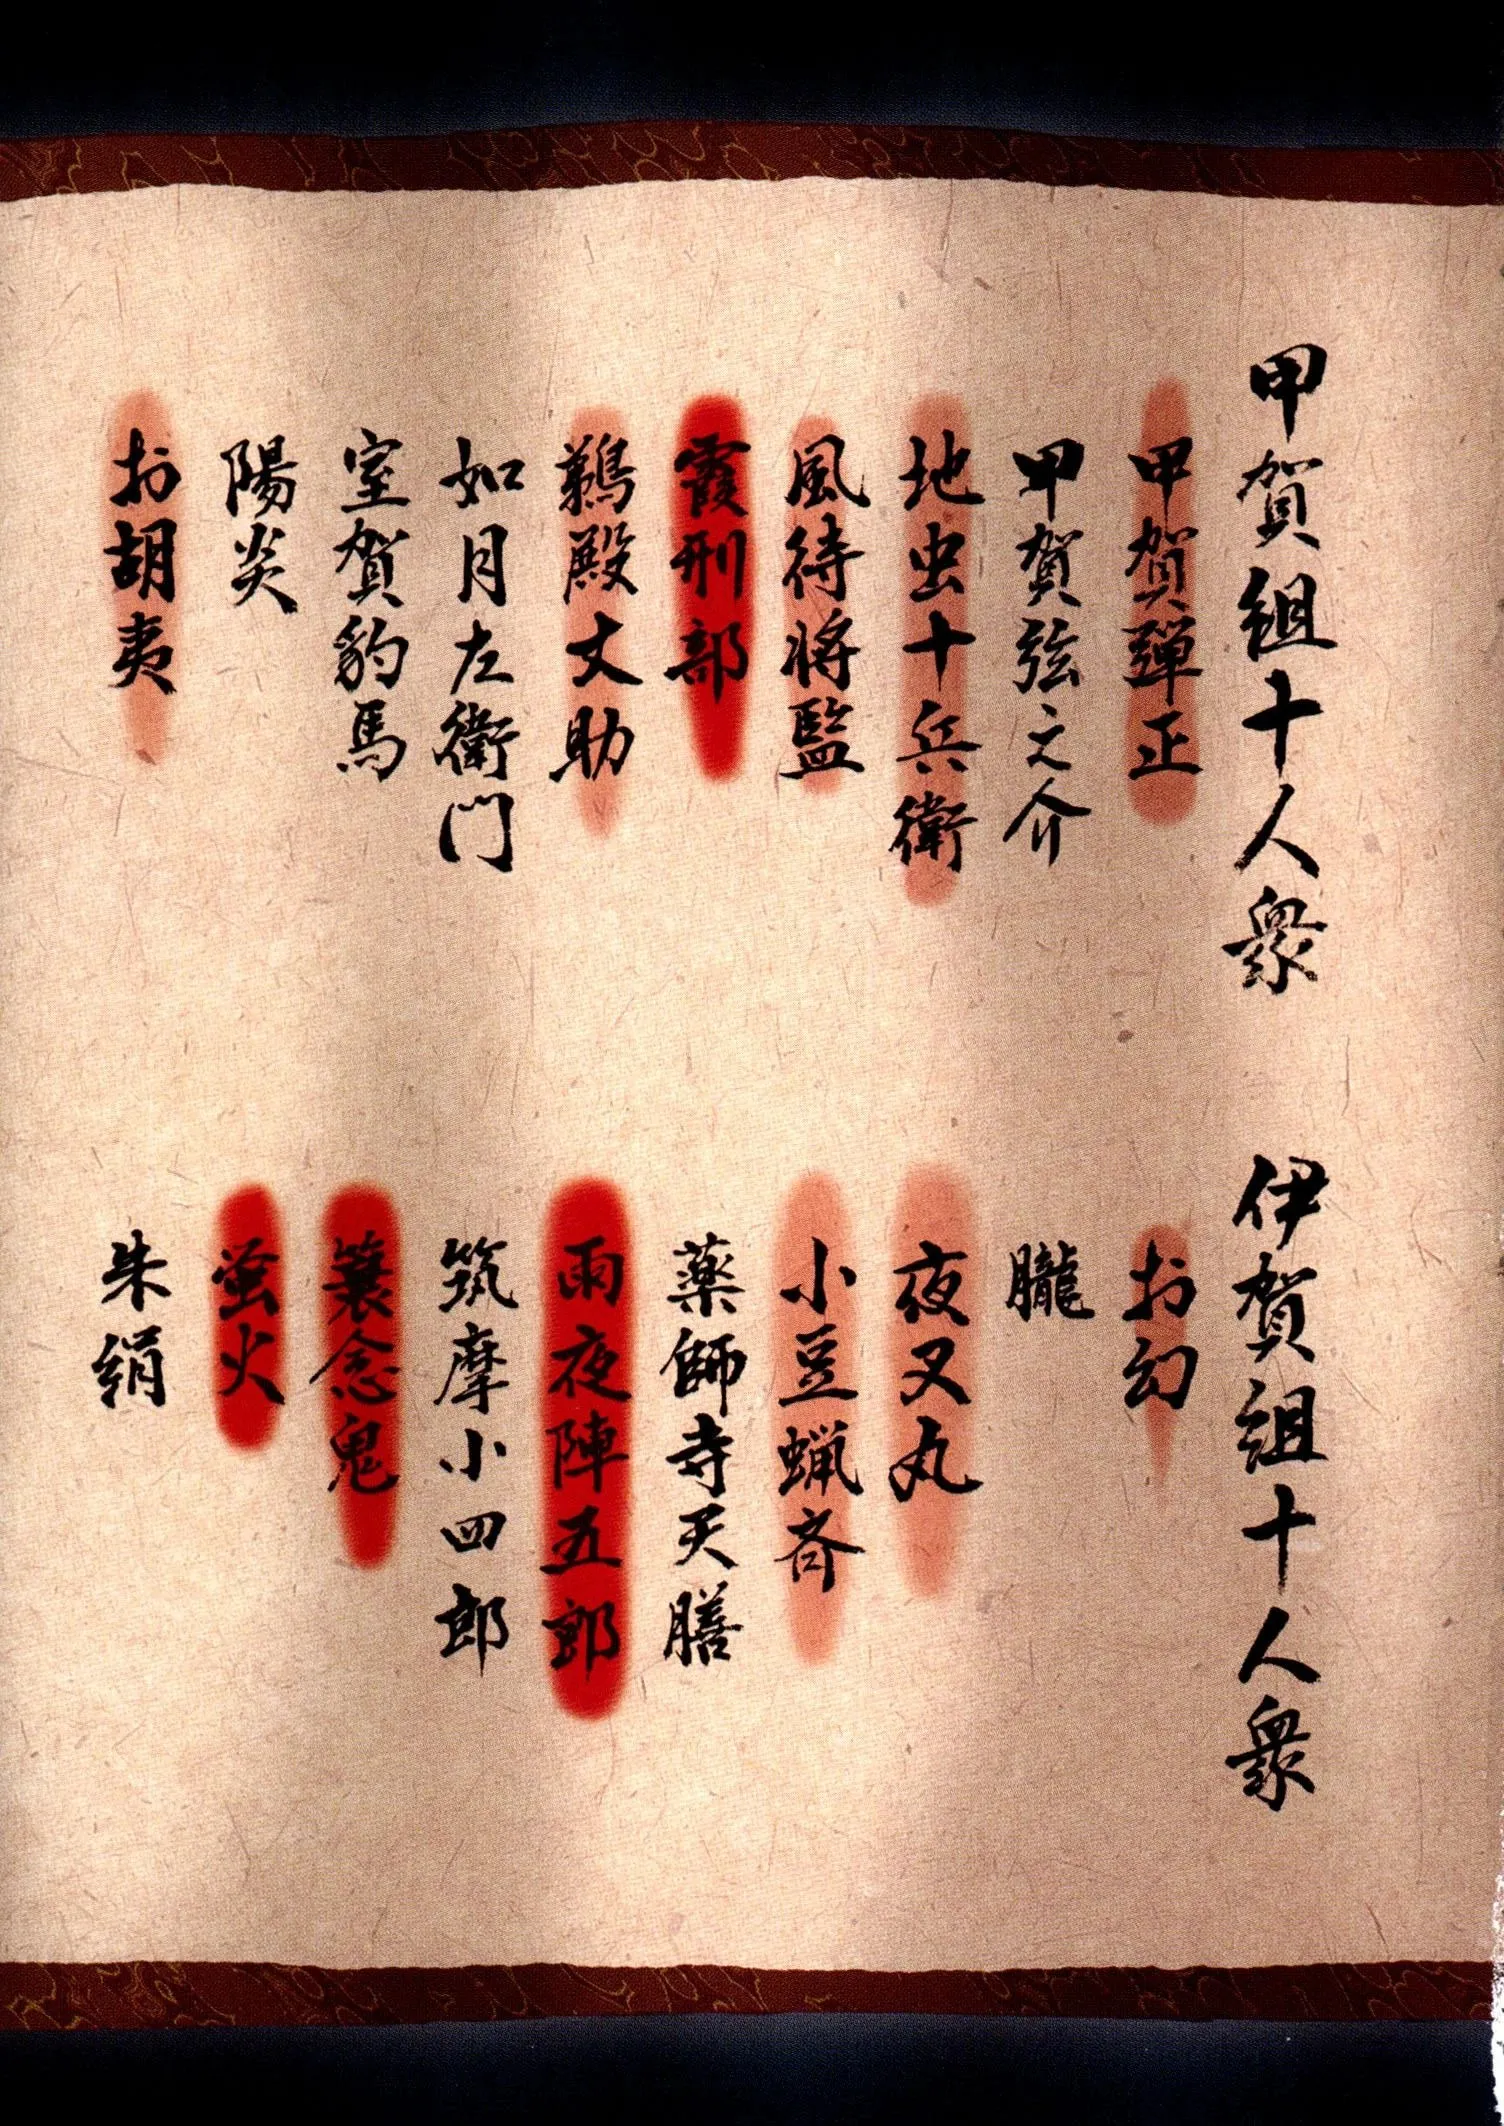 甲賀組十人衆
甲賀彈正
甲賀弦之介
地虫十兵衛
風待将監
霞刑部
鵜殿丈助
如月左衛門
室賀豹馬
陽炎
お胡夷
伊賀組十人衆
お幻
朧
夜叉丸
小豆蝋斎
薬師寺天膳
雨夜陣五郎
筑摩小四郎
簑念鬼
蛍火
朱絹